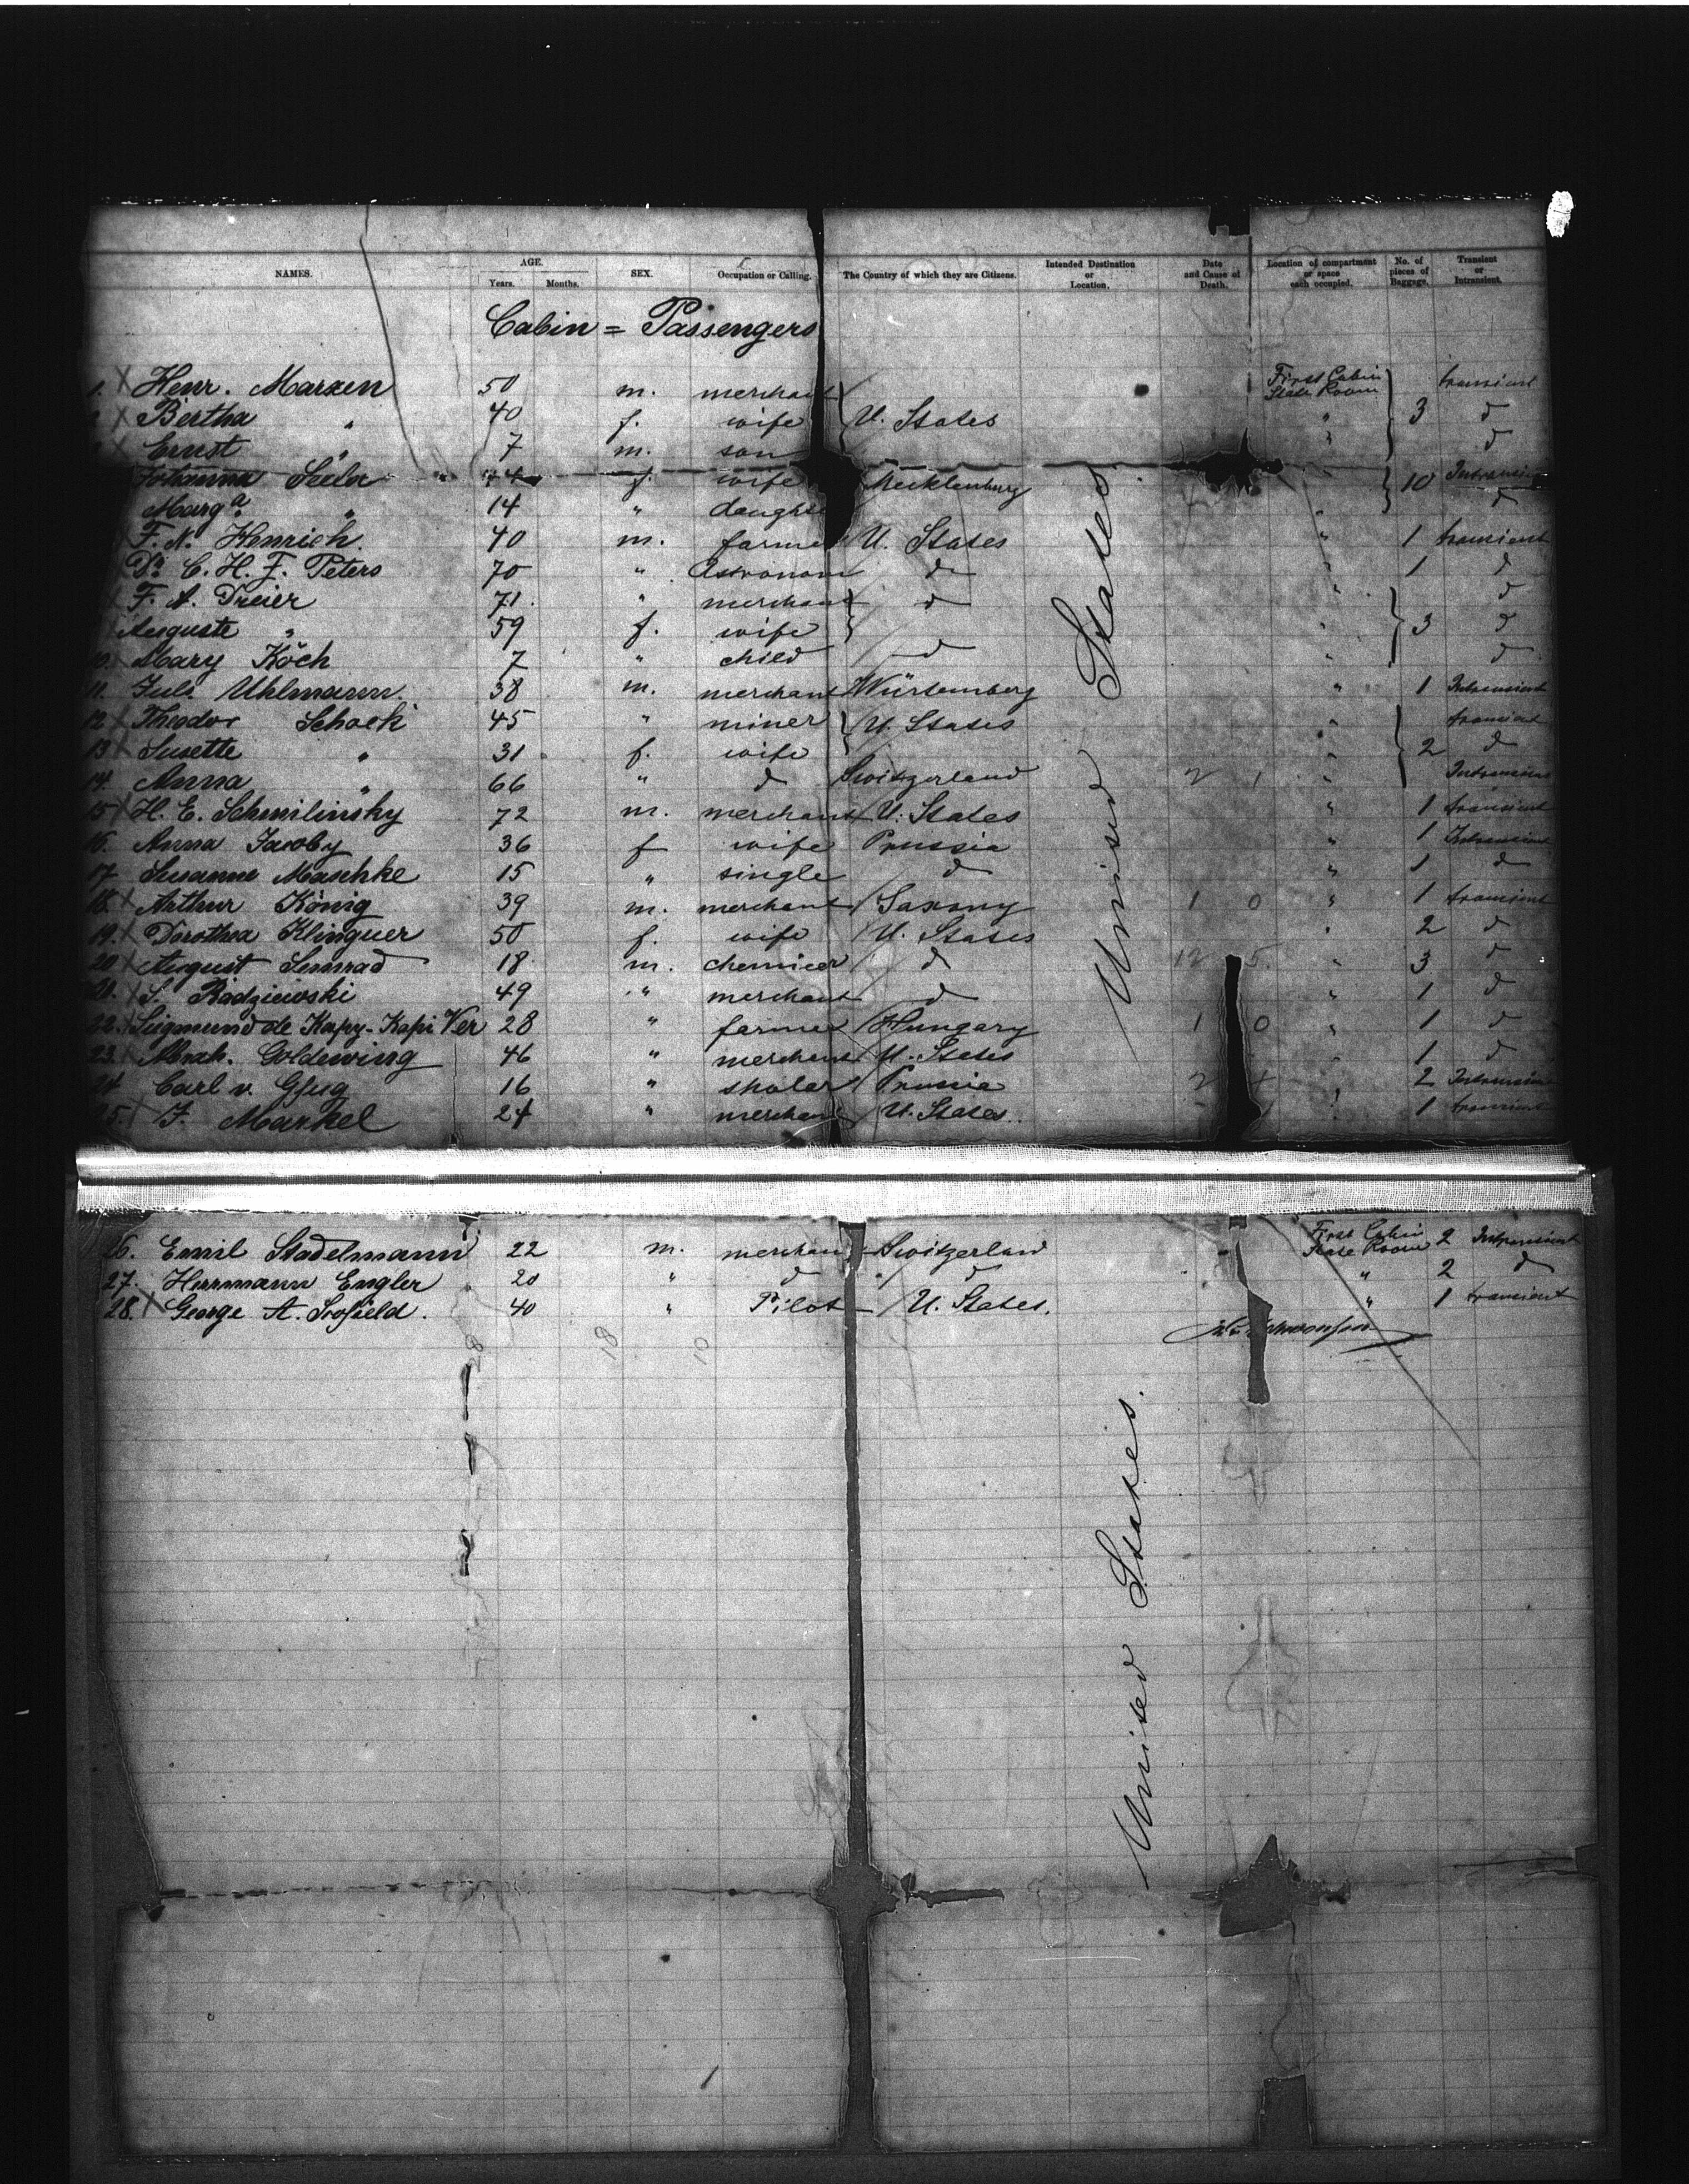 NAMES. AGE. Years. Months. SEX. Occupation or Calling. The Country of which they are Citizens. Intended Destination or Location. Date and Cause of Death. Location of compartment or space each occupied. No. of pieces of Baggage. Transient or Intransient.
Cabin = Passengers
1. Henr. Marxen 50 m. merchant First Cabin State Room transient
Bertha " 40 f. wife U. States " 3 d
Ernst " 7 m. son " d
Johanna Seeler f. wife Mecklenburg 10 Intransient
Marg.a " 14 " daughter d
F. N. Henrich 40 m. farmer U. States " 1 transient
Dr. C. H. F. Peters 70 " Astronom d " 1 d
F. A. Dreier 71. " merchant d " d
Auguste " 59 f. wife " 3 d
10. Mary Köch 7 " child d " d
11. Juls. Uhlmann 38 m. merchant Würtemberg " 1 Intransient
12. Theodor Schoch 45 " miner U. States " transient
13. Susette " 31 f. wife " 2 d
14. Anna " 66 " d Switzerland 2 1 " Intransient
15 H. E. Schmilinsky 72 m. merchant U. States " 1 transient
16. Anna Jacoby 36 f wife Prussia " 1 Intransient
17 Susanne Maschke 15 " single d " 1 d
18. Arthur König 39 m. merchant Saxony 1 0 " 1 transient
19. Dorothea Klinguer 50 f. wife U. States " 2 d
20 August Semrad 18 m. chemicer d 12 5. " 3 d
21. S. Radziewski 49 " merchant d " 1 d
22. Siegmund de Kapy-Kapi Ver 28 " farmer Hungary 1 0 " 1 d
23. Abrah. Goldewing 46 " merchant U. States " 1 d
24 Carl v. Gfug 16 " sholar Prussia 2 " 2 Intransient
25. F. Markel 24 " merchant U. States. " 1 transient
United States.
26. Emil Stadelmann 22 m. merchant Switzerland First Cabin State Room 2 Intransient
27. Herrmann Engler 20 " d d " 2 d
28. George A. Scofield. 40 " Pilot U. States. " 1 transient
28 18 10
United States.